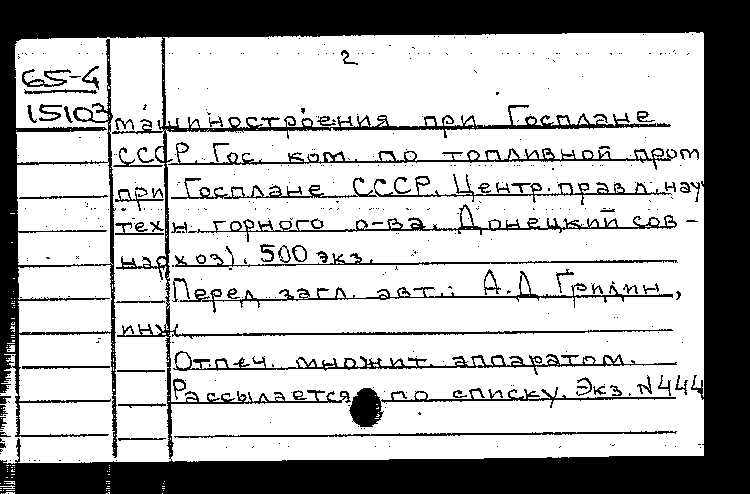 2
65-4
15103
машиностроения при Госплане
СССР. Гос. ком. по топливной пром
при Госплане СССР. Центр. правл. науч
техн. горного о-ва. Донецкий сов-
нархоз). 500 экз.
Перед загл. авт.: А.Д Гридин,
инж.
Отпеч. множит. аппаратом.
Рассылается по списку. Экз. N444